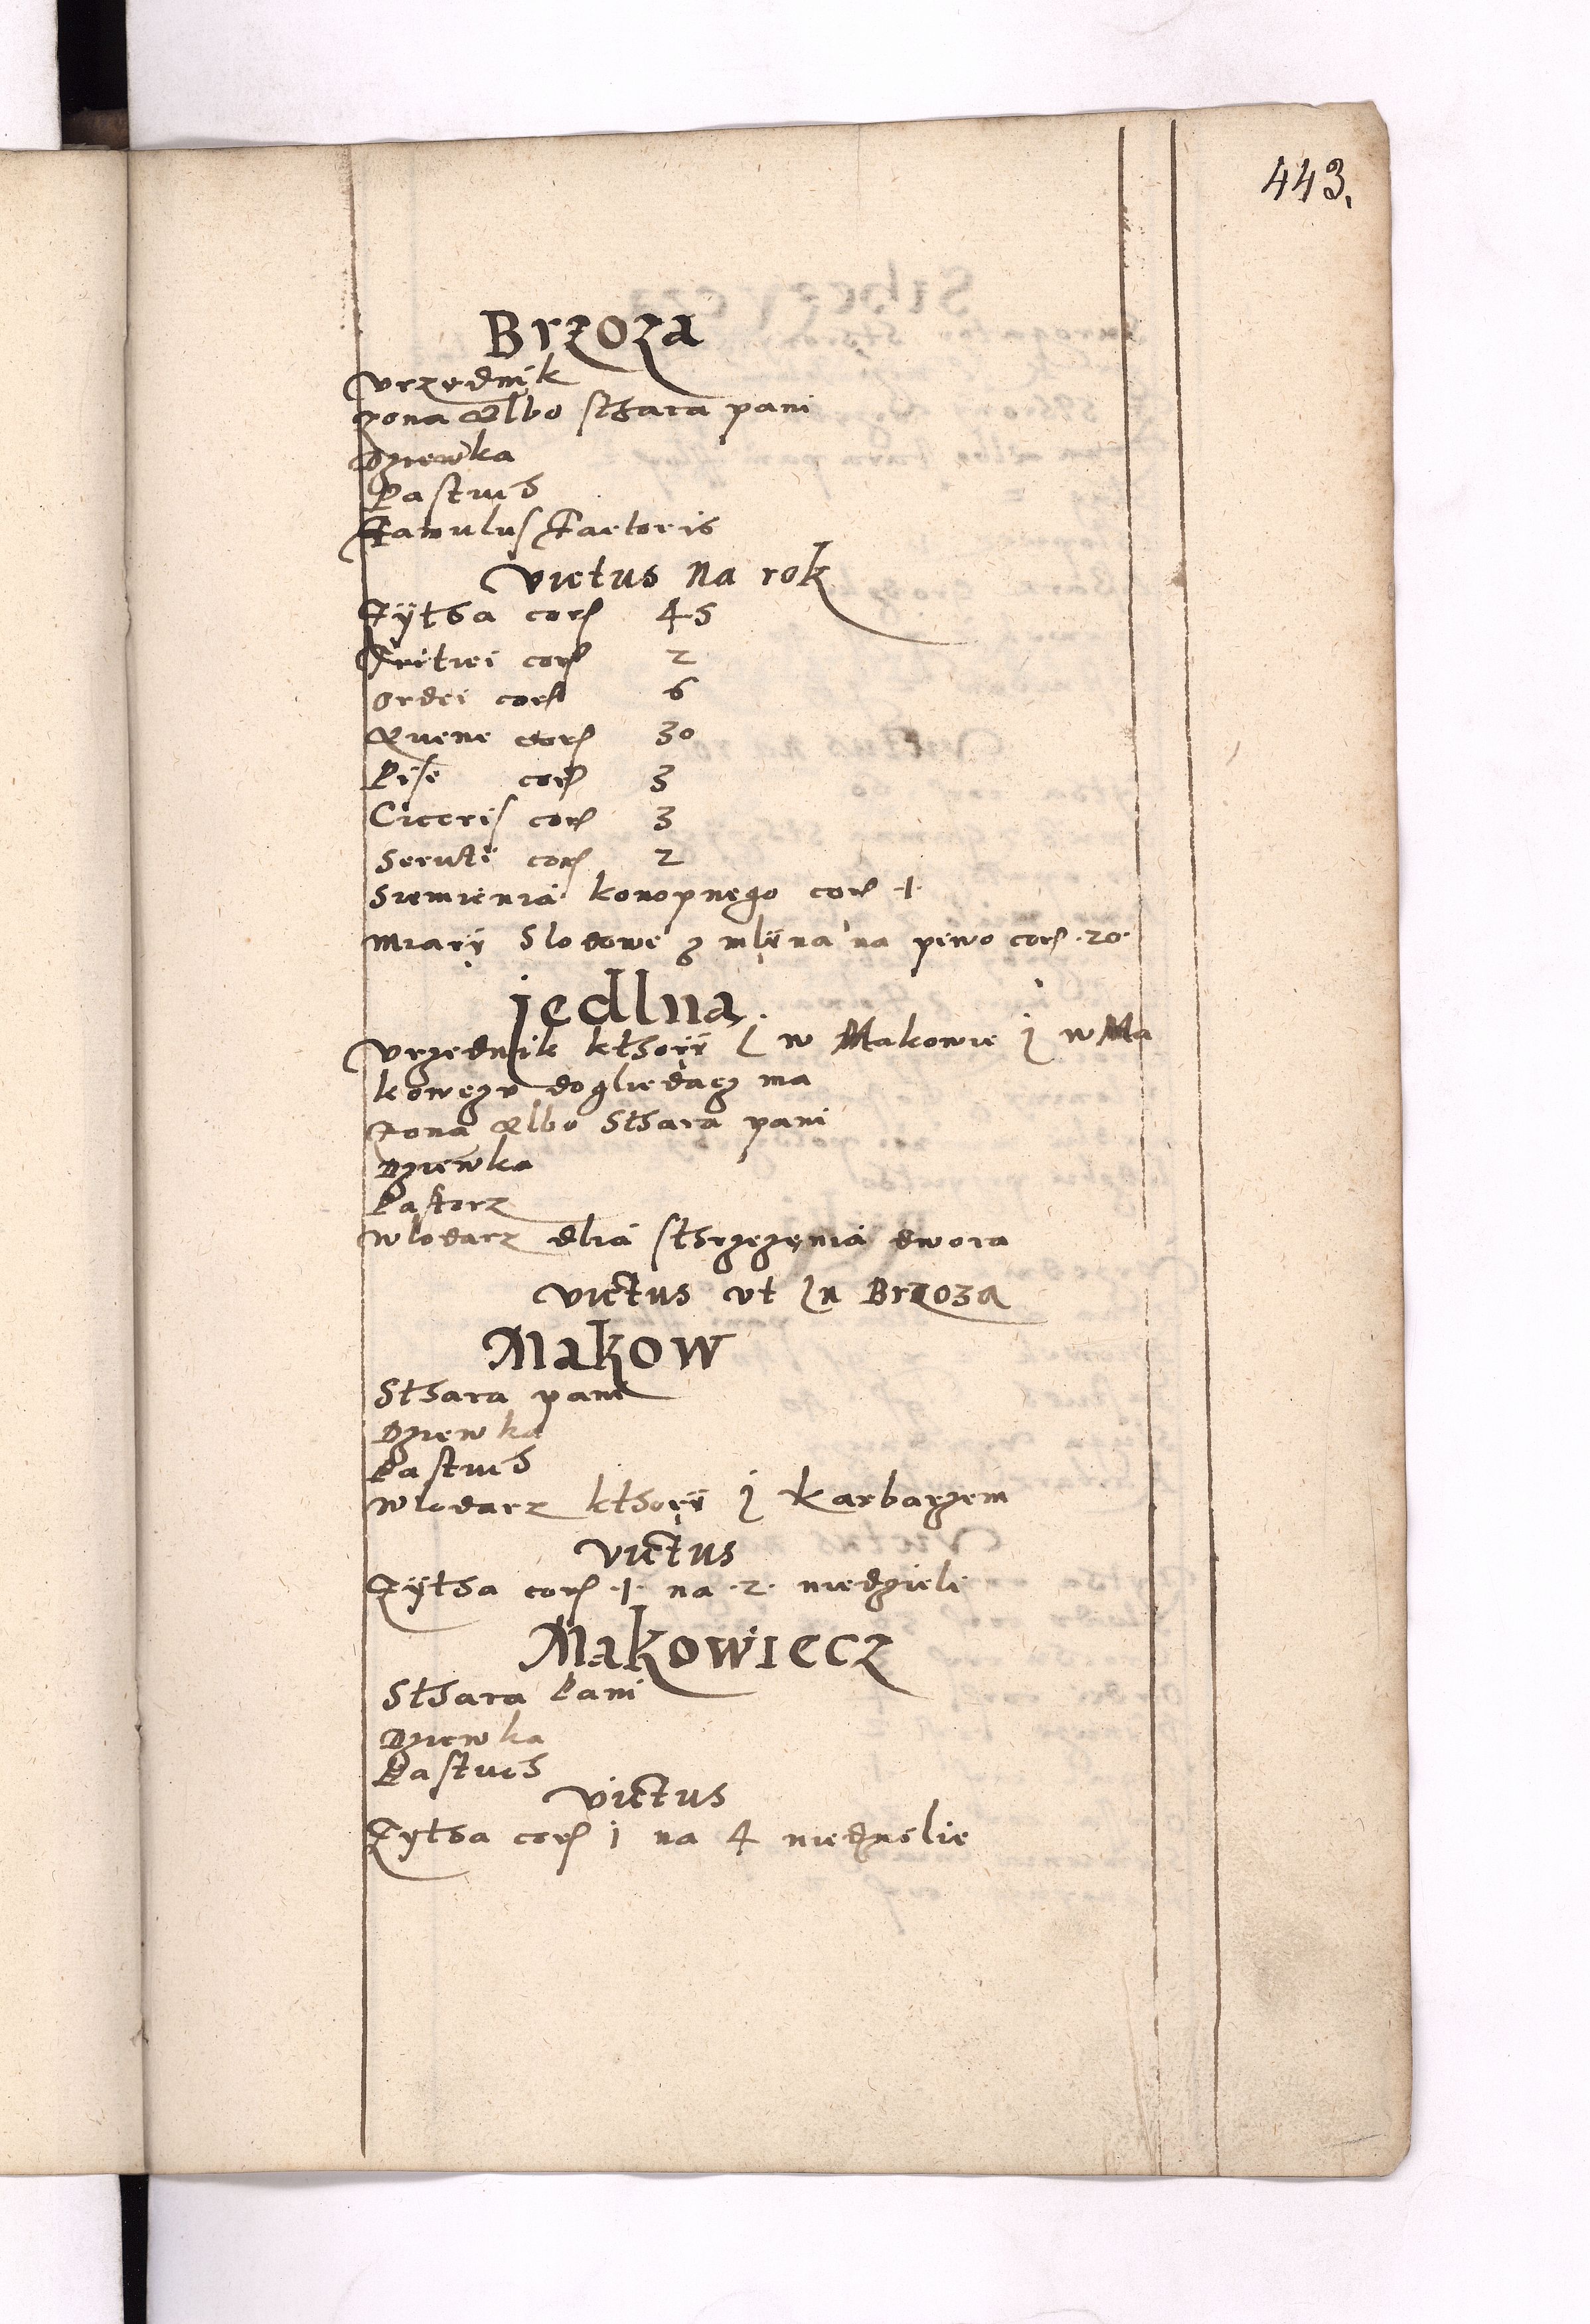 443.
Brzoza
Vrzednik
zona albo sthara pani
Dzyewka
Pastuch
Famulus Factoris
Victus na rok
Zÿtha cor. 45
Tritici cor. 2
Ordei cor. 6
Avene cor. 30
Pise cor. 3
Ciceris cor. 3
cor. 2
Siemienia konopnego cor. 1
Miarÿ Slodowe z mlÿna na piwo cor. 20
jedlna
Vrzednik kthorÿ i w Makowie i w Ma
kowczu dogliedacz ma
Zona albo Sthara pani
Dziewka
Pastorz
Wlodarz dlia sthrzezenia dwora
Victus vt in Brzoza
Makow
Sthara pani
Dziewka
Pastuch
Wlodarz kthorÿ i karbarzem
Victus
Zÿtha cor. 1 na 2 niedzieli
Makowiecz
Sthara Pani
Dziewka
Pastuch
Victus
Zytha cor. 1 na 4